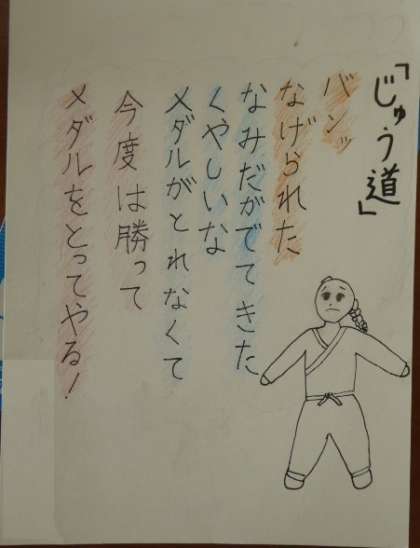 「じゅう道」
バンッ
なげられた
なみだがでてきた
くやしいな
メダルがとれなくて
今度は勝って
メダルをとってやる！